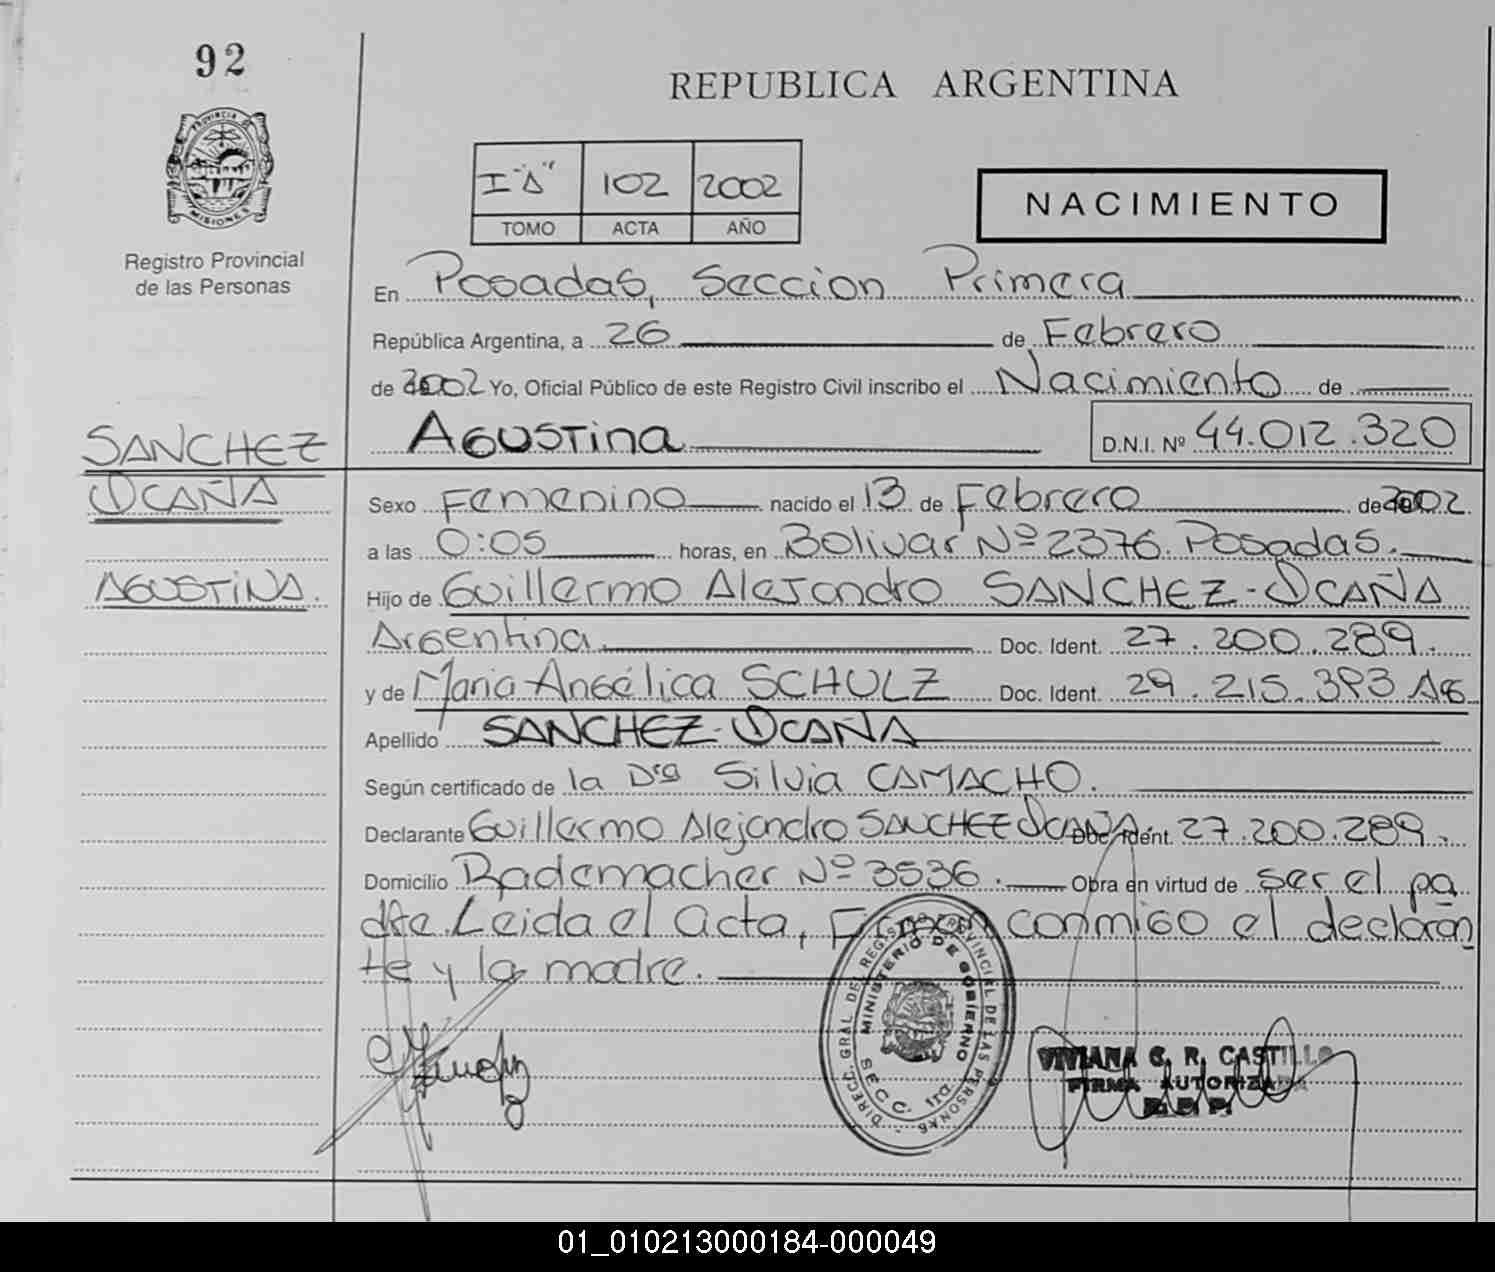 92
REPUBLICA ARGENTINA
PROVINCIA DE
MISIONES
Registro Provincial
de las Personas
I "A" 102 2002
TOMO ACTA AÑO
NACIMIENTO
En Posadas, Seccion Primera
República Argentina, a 26 de Febrero
de 2002 Yo, Oficial Público de este Registro Civil inscribo el Nacimiento de
Agustina D.N.I. Nº 44.012.320
SANCHEZ
OCAÑA
AGUSTINA.
Sexo Femenino nacido el 13 de Febrero de 2002
a las 0:05 horas, en Bolivar Nº 2376. Posadas.
Hijo de Guillermo Alejandro SANCHEZ-OCAÑA
Argentina Doc. Ident. 27.200.289.
y de Maria Angélica SCHULZ Doc. Ident. 29.215.393 Ag
Apellido SANCHEZ-OCAÑA
Según certificado de la Dra Silvia CAMACHO.
Declarante Guillermo Alejandro SANCHEZ OCAÑA Doc. Ident. 27.200.289.
Domicilio Rademacher Nº 3536. Obra en virtud de ser el pa
dre. Leida el acta, Firman conmigo el declaran
te y la madre.
DIRECC. GRAL DE REGISTRO PROVINCIAL DE LAS PERSONAS
MINISTERIO DE GOBIERNO
SECC. 1ra.
VIVIANA C. R. CASTILLO
FIRMA AUTORIZADA
01_010213000184-000049